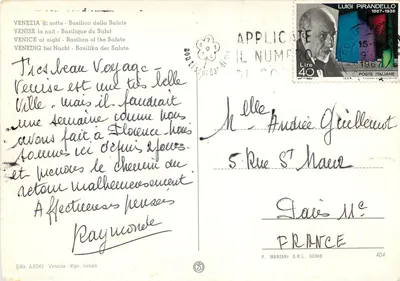 VENEZIA di notte - Basilica della Salute
VENISE la nuit - Basilique du Salut
VENICE at night - Basilica of the Salute
VENEDIG bei Nacht - Basilika der Salute
Tres beau Voyage -
Venise est une très belle
Ville, mais il faudrait
une semaine comme nous
avons fait à Florence. Nous
sommes ici depuis 2 jours
et prenons le chemin du
retour malheureusement
Affectueuses pensées
Raymonde
APPLICATE
IL NUMERO
LUIGI PIRANDELLO
1867-1936
Lire 40
POSTE ITALIANE
Mlle Andrée Guillemot
5 Rue St Maur
Paris 11e
FRANCE
Venezia - Ripr. vietata
404